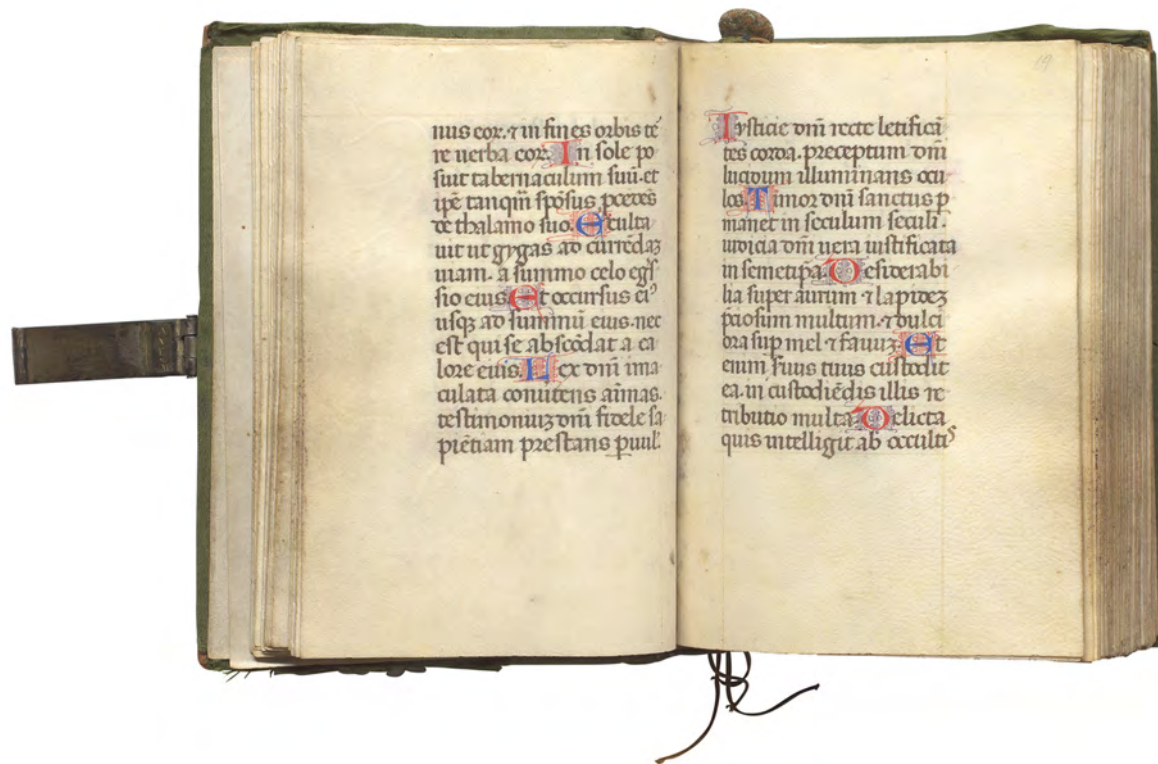 nus eor· ⁊ in fines orbis te᷒
re uerba eor. In sole po
suit tabernaculum suū· et
ip̄e tanqm̄ sp̄osus p̄cedēs
de thalamo suo. Exulta
uit ut gygas ad currēdaȝ
uiam· a summo celo egs̄
sio eius. Et occursus ei᷒
usqȝ ad summū eius· nec
est qui se abscōdat a ca
lore eius. Lex dn̄i ima
culata conuertens aīmas·
testimoniuȝ dn̄i fidele sa
piētiam prestans ꝑuul'.
Iysticie dn̄i recte letificā
tes corda· preceptum dn̄i
lucidum illuminans ocu
los. Timor dn̄i sanctus ꝑ
manet in seculum seculi·
iudicia dn̄i uera iustificata
in semetip̄a. Desiderabi
lia super aurum ⁊ lapideȝ
p̄ciosum multum· ⁊ dulci
ora suꝑ mel ⁊ fauuȝ. Et
enim s̄uus tuus custodit
ea· in custodiēdis illis re
tributio multa. Delicta
quis intelligit ab occultis
19